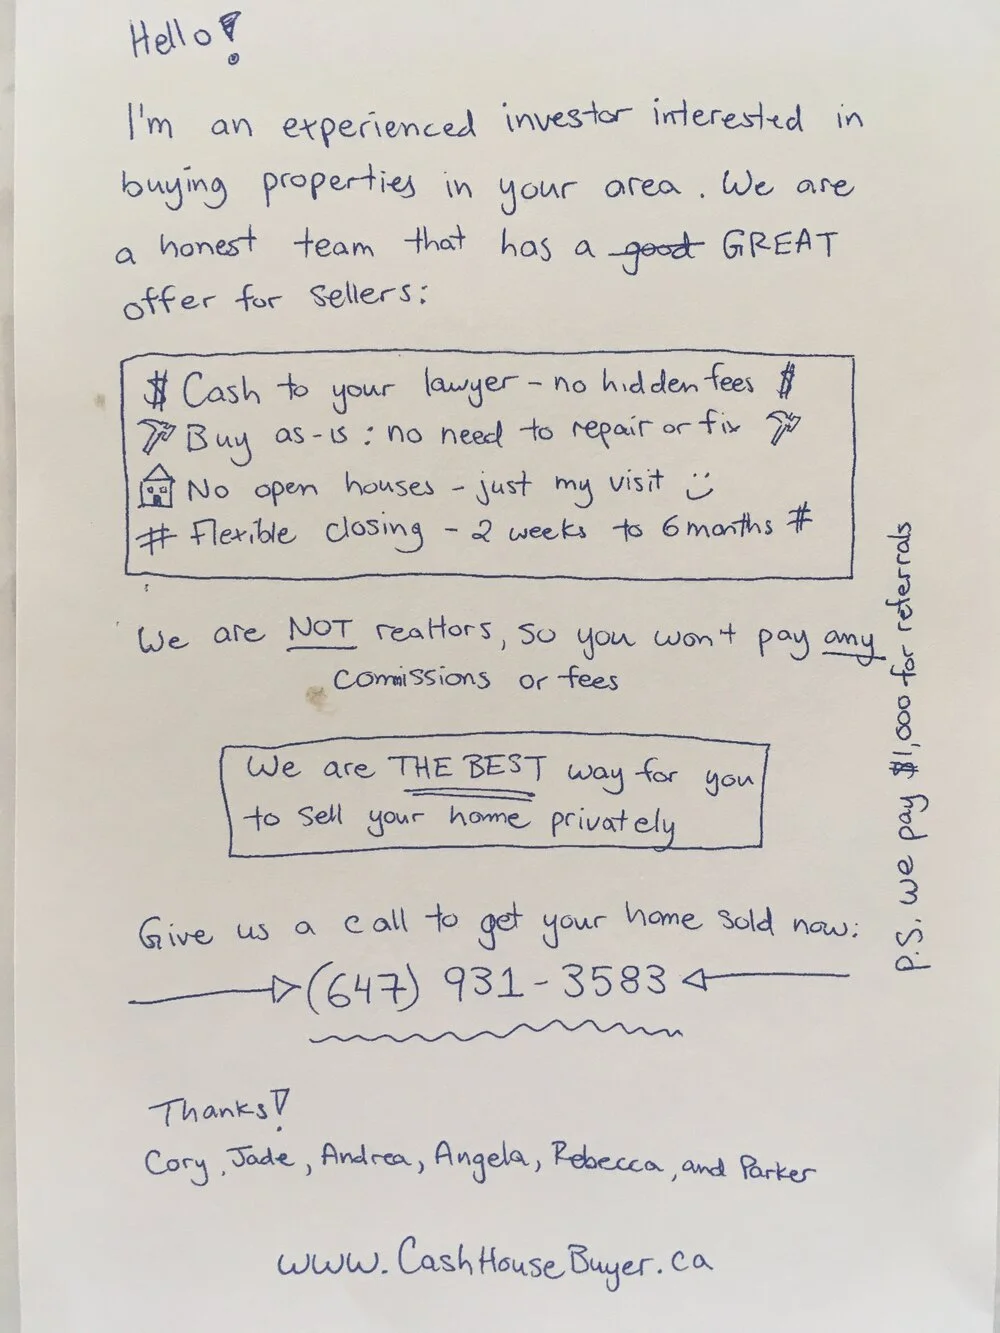 Hello!
I'm an experienced investor interested in
buying properties in your area. We are
a honest team that has a good GREAT
offer for sellers:
$ Cash to your lawyer - no hidden fees $
Buy as-is: no need to repair or fix
No open houses - just my visit :)
# Flexible closing - 2 weeks to 6 months #
We are NOT realtors, so you won't pay any
comissions or fees
We are THE BEST way for you
to sell your home privately
Give us a call to get your home sold now:
(647) 931-3583
P.S. we pay $1,000 for referrals
Thanks!
Cory, Jade, Andrea, Angela, Rebecca, and Parker
www.CashHouseBuyer.ca